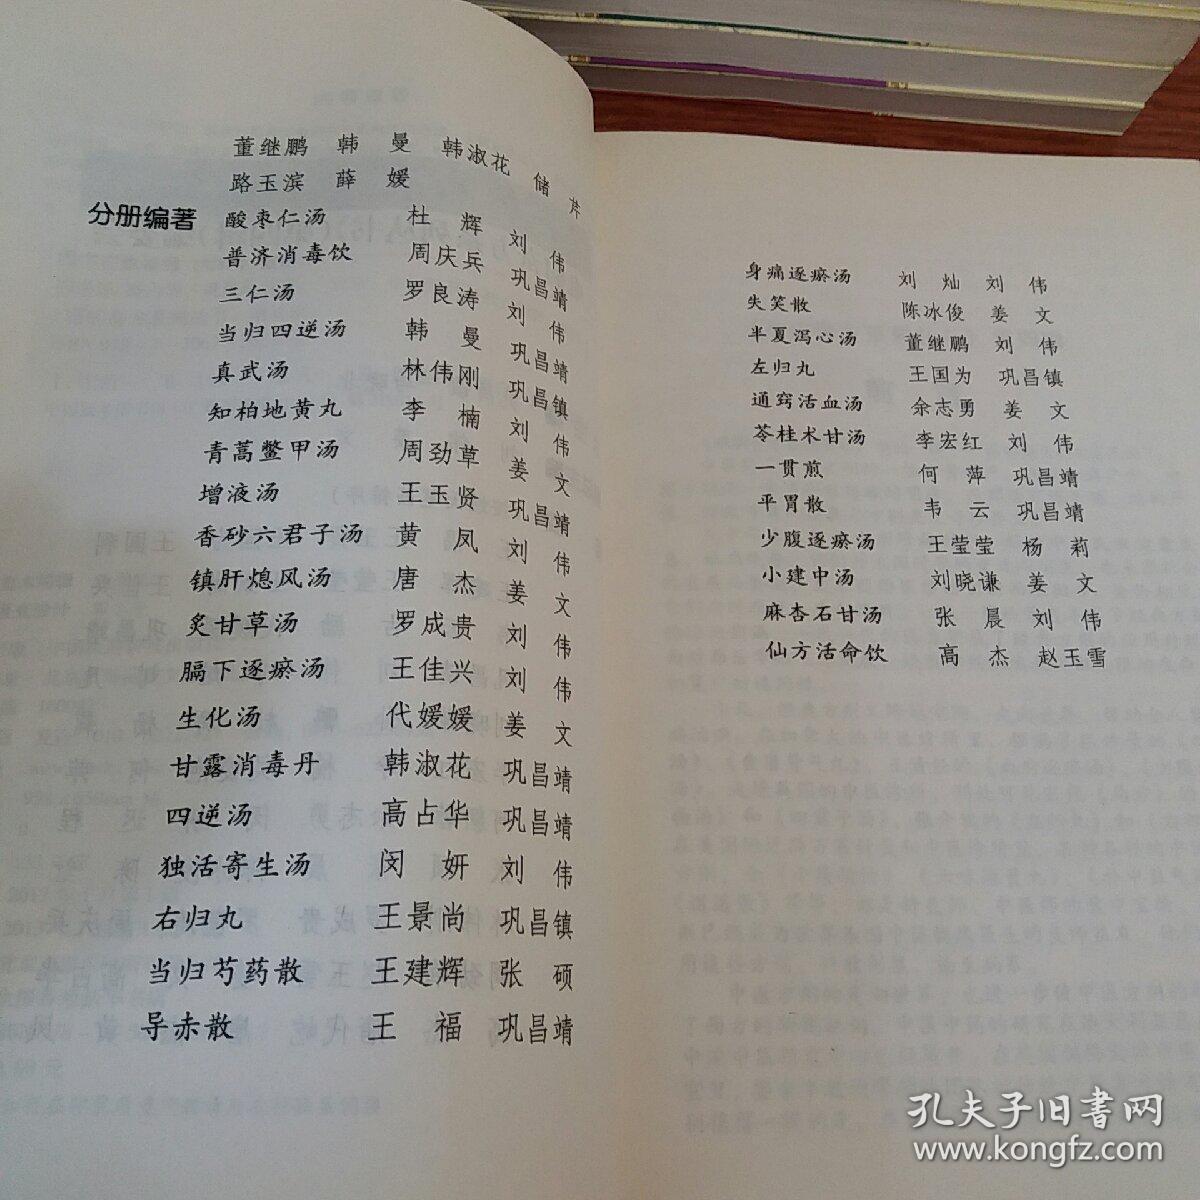 董继鹏 韩 曼 韩淑花 储 芹
路玉滨 薛 媛
分册编著 酸枣仁汤 杜 辉 刘 伟
普济消毒饮 周庆兵 巩昌靖
三仁汤 罗良涛 刘 伟
当归四逆汤 韩 曼 巩昌靖
真武汤 林伟刚 巩昌镇
知柏地黄丸 李 楠 刘 伟
青蒿鳖甲汤 周劲草 姜 文
增液汤 王玉贤 巩昌靖
香砂六君子汤 黄 凤 刘 伟
镇肝熄风汤 唐 杰 姜 文
炙甘草汤 罗成贵 刘 伟
膈下逐瘀汤 王佳兴 刘 伟
生化汤 代媛媛 姜 文
甘露消毒丹 韩淑花 巩昌靖
四逆汤 高占华 巩昌靖
独活寄生汤 闵 妍 刘 伟
右归丸 王景尚 巩昌镇
当归芍药散 王建辉 张 硕
导赤散 王 福 巩昌靖
身痛逐瘀汤 刘 灿 刘 伟
失笑散 陈冰俊 姜 文
半夏泻心汤 董继鹏 刘 伟
左归丸 王国为 巩昌镇
通窍活血汤 余志勇 姜 文
苓桂术甘汤 李宏红 刘 伟
一贯煎 何 萍 巩昌靖
平胃散 韦 云 巩昌靖
少腹逐瘀汤 王莹莹 杨 莉
小建中汤 刘晓谦 姜 文
麻杏石甘汤 张 晨 刘 伟
仙方活命饮 高 杰 赵玉雪
孔夫子旧书网
www.kongfz.com